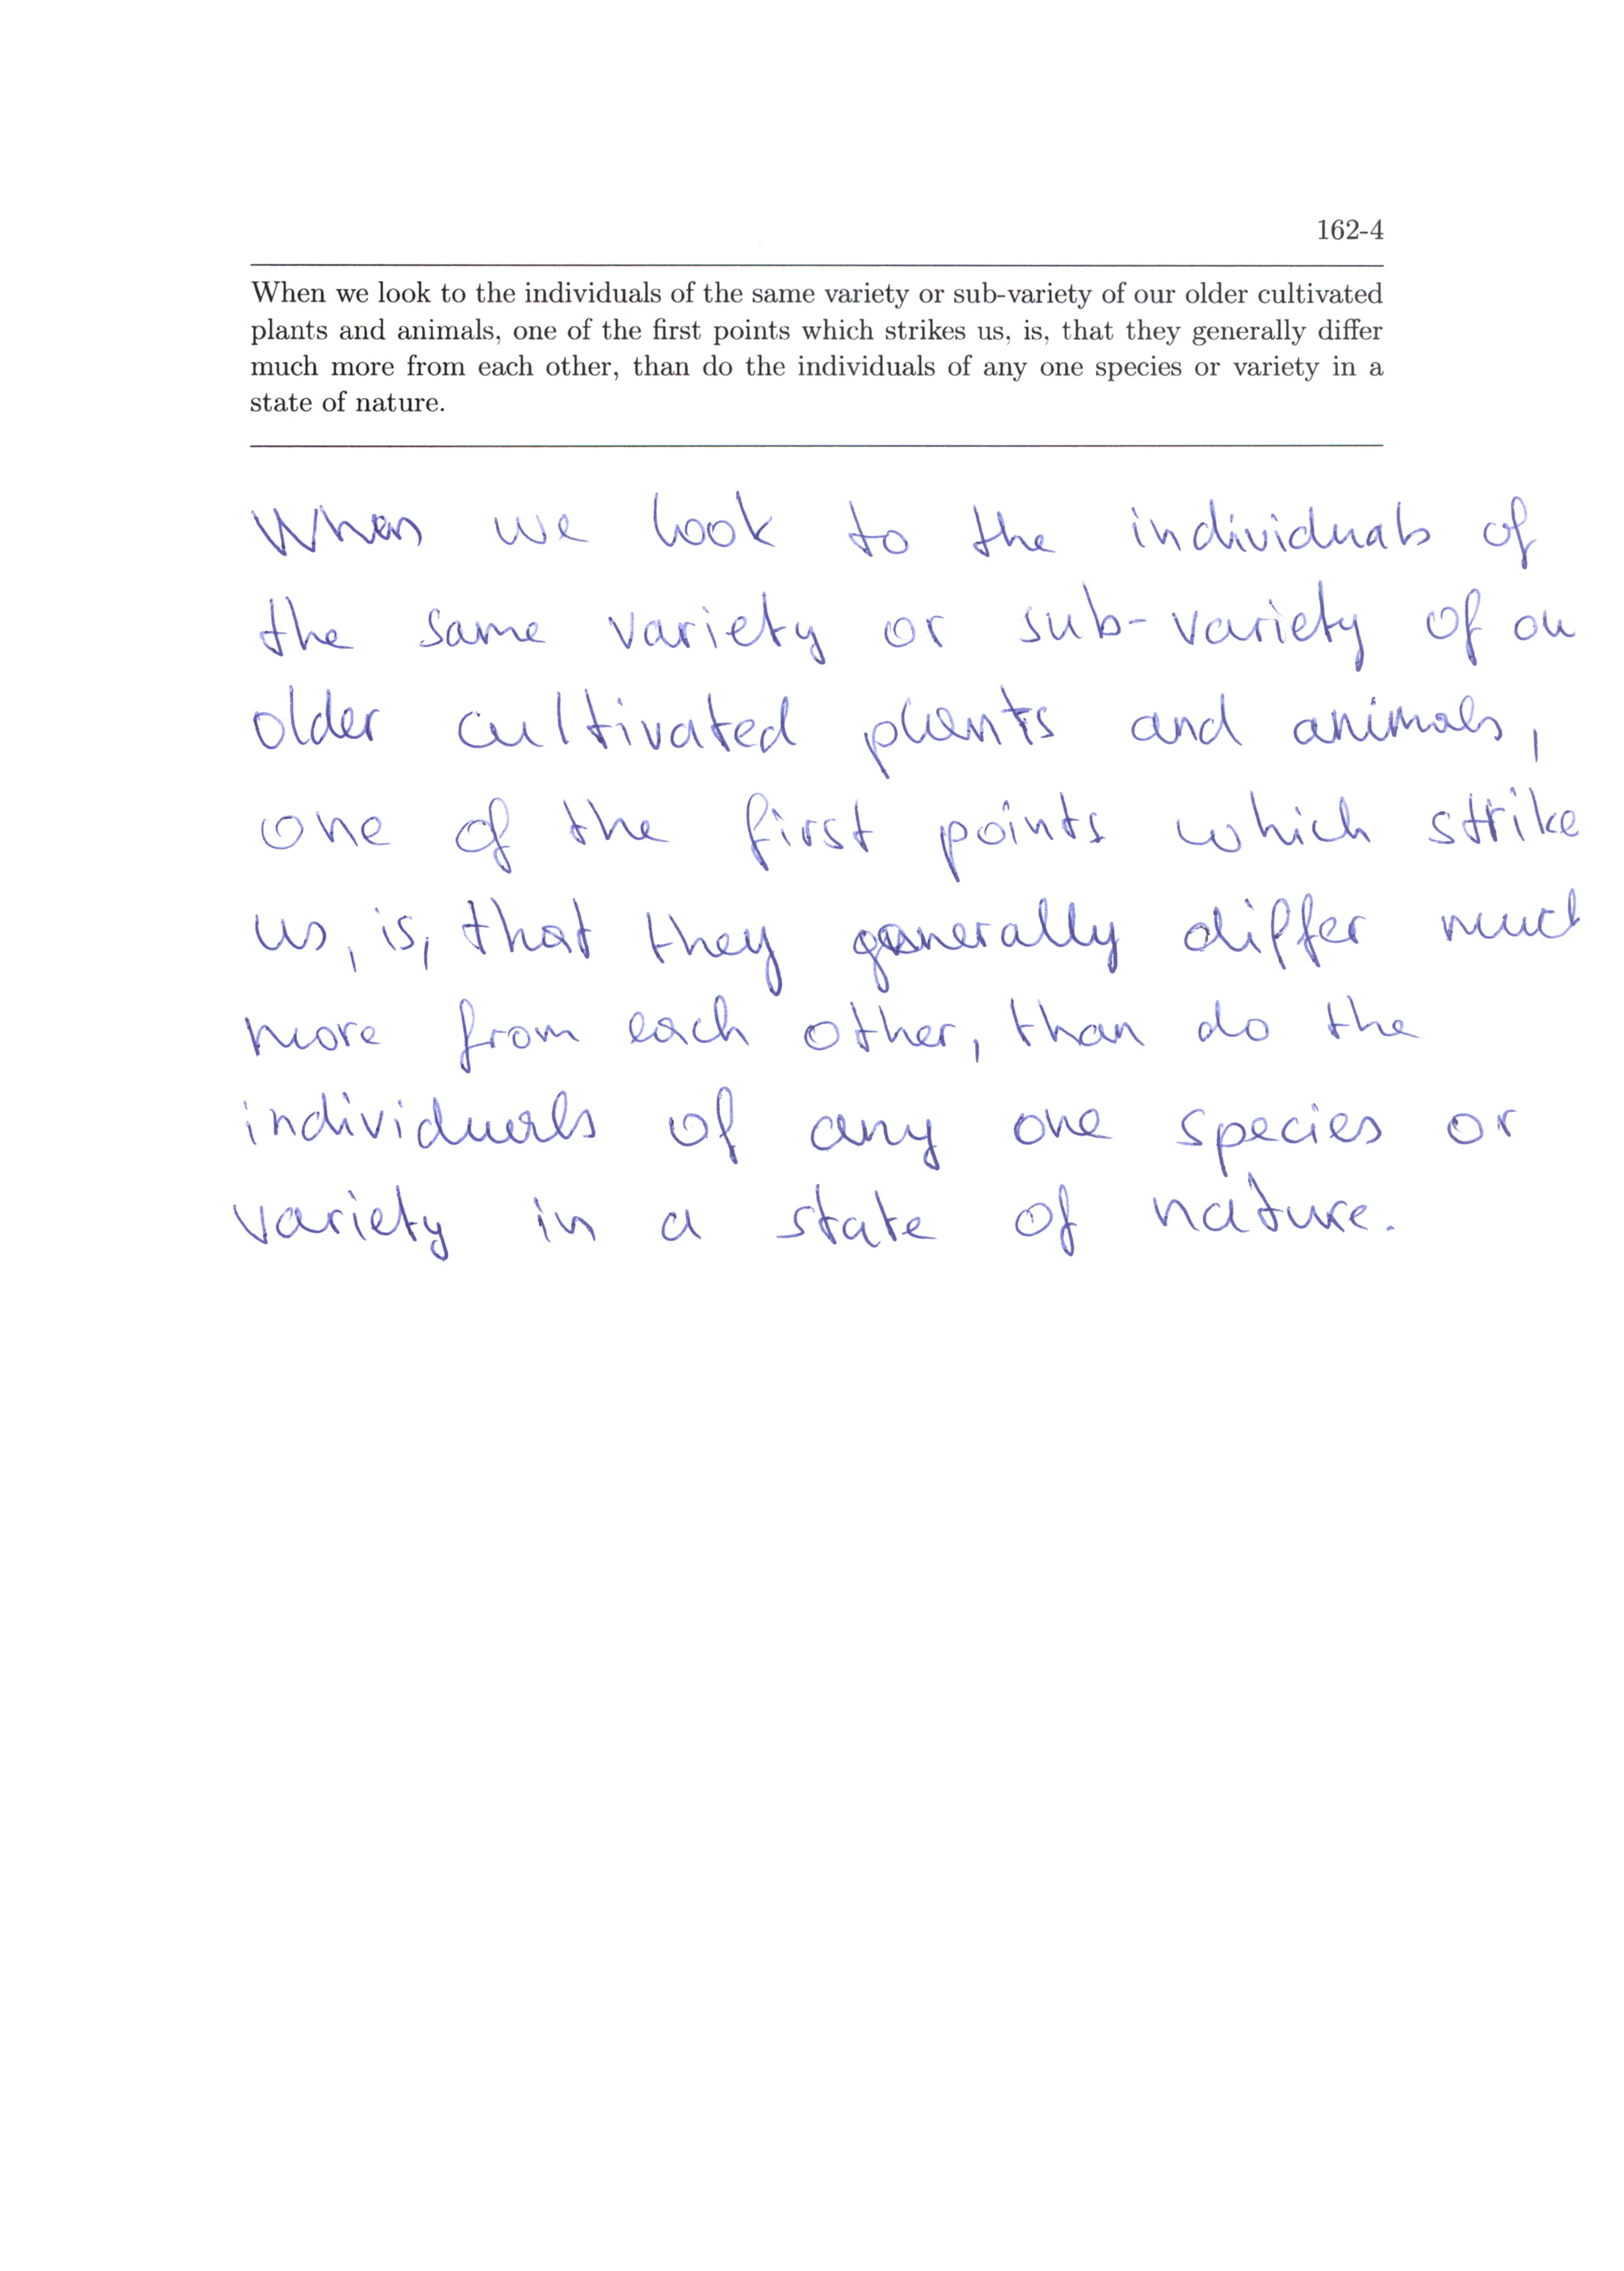 162-4
When we look to the individuals of the same variety or sub-variety of our older cultivated
plants and animals, one of the first points which strikes us, is, that they generally differ
much more from each other, than do the individuals of any one species or variety in a
state of nature.
When we look to the individuals of
the same variety or sub-variety of ou
older cultivated plants and animals,
one of the first points which strike
us, is, that they generally differ much
more from each other, than do the
individuals of any one species or
variety in a state of nature.